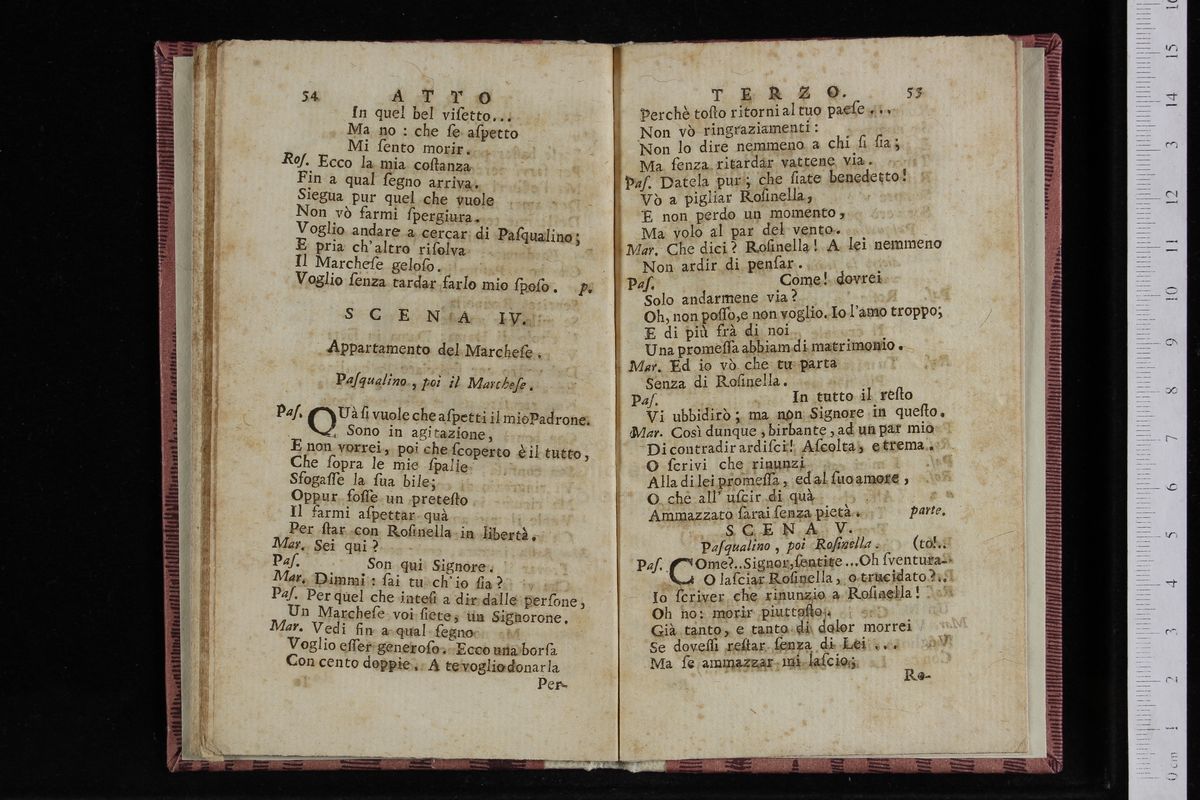 54 ATTO
In quel bel viſetto...
Ma no : che ſe aſpetto
Mi ſento morir.
Roſ. Ecco la mia coſtanza
Fin a qual ſegno arriva.
Siegua pur quel che vuole
Non vò farmi ſpergiura.
Voglio andare a cercar di Paſqualino;
E pria ch'altro riſolva
Il Marcheſe geloſo.
Voglio ſenza tardar farlo mio ſpoſo. p.
SCENA IV.
Appartamento del Marcheſe.
Paſqualino, poi il Marcheſe.
Paſ. QUà ſi vuole che aſpetti il mio Padrone.
Sono in agitazione,
E non vorrei, poi che ſcoperto è il tutto,
Che ſopra le mie ſpalle
Sfogaſſe la ſua bile;
Oppur foſſe un preteſto
Il farmi aſpettar quà
Per ſtar con Roſinella in libertà.
Mar. Sei qui ?
Paſ. Son qui Signore.
Mar. Dimmi : ſai tu ch'io ſia ?
Paſ. Per quel che inteſi a dir dalle perſone,
Un Marcheſe voi ſiete, un Signorone.
Mar. Vedi fin a qual ſegno
Voglio eſſer generoſo. Ecco una borſa
Con cento doppie. A te voglio donarla
Per-
TERZO. 55
Perchè toſto ritorni al tuo paeſe...
Non vò ringraziamenti :
Non lo dire nemmeno a chi ſi ſia;
Ma ſenza ritardar vattene via.
Paſ. Datela pur; che ſiate benedetto!
Vò a pigliar Roſinella,
E non perdo un momento,
Ma volo al par del vento.
Mar. Che dici ? Roſinella ! A lei nemmeno
Non ardir di penſar.
Paſ. Come! dovrei
Solo andarmene via ?
Oh, non poſſo, e non voglio. Io l'amo troppo;
E di più frà di noi
Una promeſſa abbiam di matrimonio.
Mar. Ed io vò che tu parta
Senza di Roſinella.
Paſ. In tutto il reſto
Vi ubbidirò; ma non Signore in queſto.
Mar. Così dunque, birbante, ad un par mio
Di contradir ardiſci! Aſcolta, e trema.
O ſcrivi che rinunzi
Alla di lei promeſſa, ed al ſuo amore,
O che all' uſcir di quà
Ammazzato ſarai ſenza pietà. parte.
SCENA V.
Paſqualino, poi Roſinella. (to!..
Paſ. COme?.. Signor, ſentite... Oh ſventura-
O laſciar Roſinella, o trucidato ?..
Io ſcriver che rinunzio a Roſinella !
Oh no: morir piuttoſto.
Già tanto, e tanto di dolor morrei
Se doveſſi reſtar ſenza di Lei ...
Ma ſe ammazzar mi laſcio;
Ro-